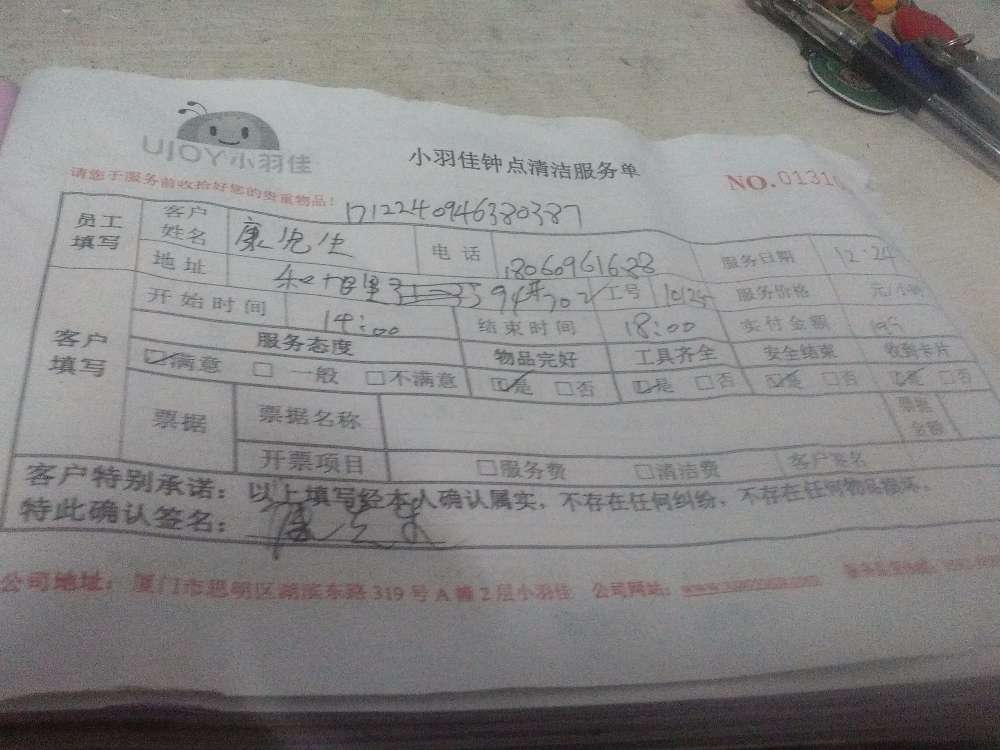 UJOY小羽佳
小羽佳钟点清洁服务单
NO.0131
请您于服务前收拾好您的贵重物品！
1712240946380387
员工填写 客户姓名 康先生 电话 18060961688 服务日期 12:24
地址 工号 服务价格 元/小时
客户填写 开始时间 14:00 结束时间 18:00 实付金额
服务态度 物品完好 工具齐全 安全结束 收到卡片
☑满意 □一般 □不满意 ☑是 □否 ☑是 □否 ☑是 □否 ☑是 □否
票据 票据名称 票据金额
开票项目 □服务费 □清洁费 客户签名
客户特别承诺：以上填写经本人确认属实，不存在任何纠纷，不存在任何物品损坏，
特此确认签名：
公司地址：厦门市思明区湖滨东路319号A幢2层小羽佳 公司网站：